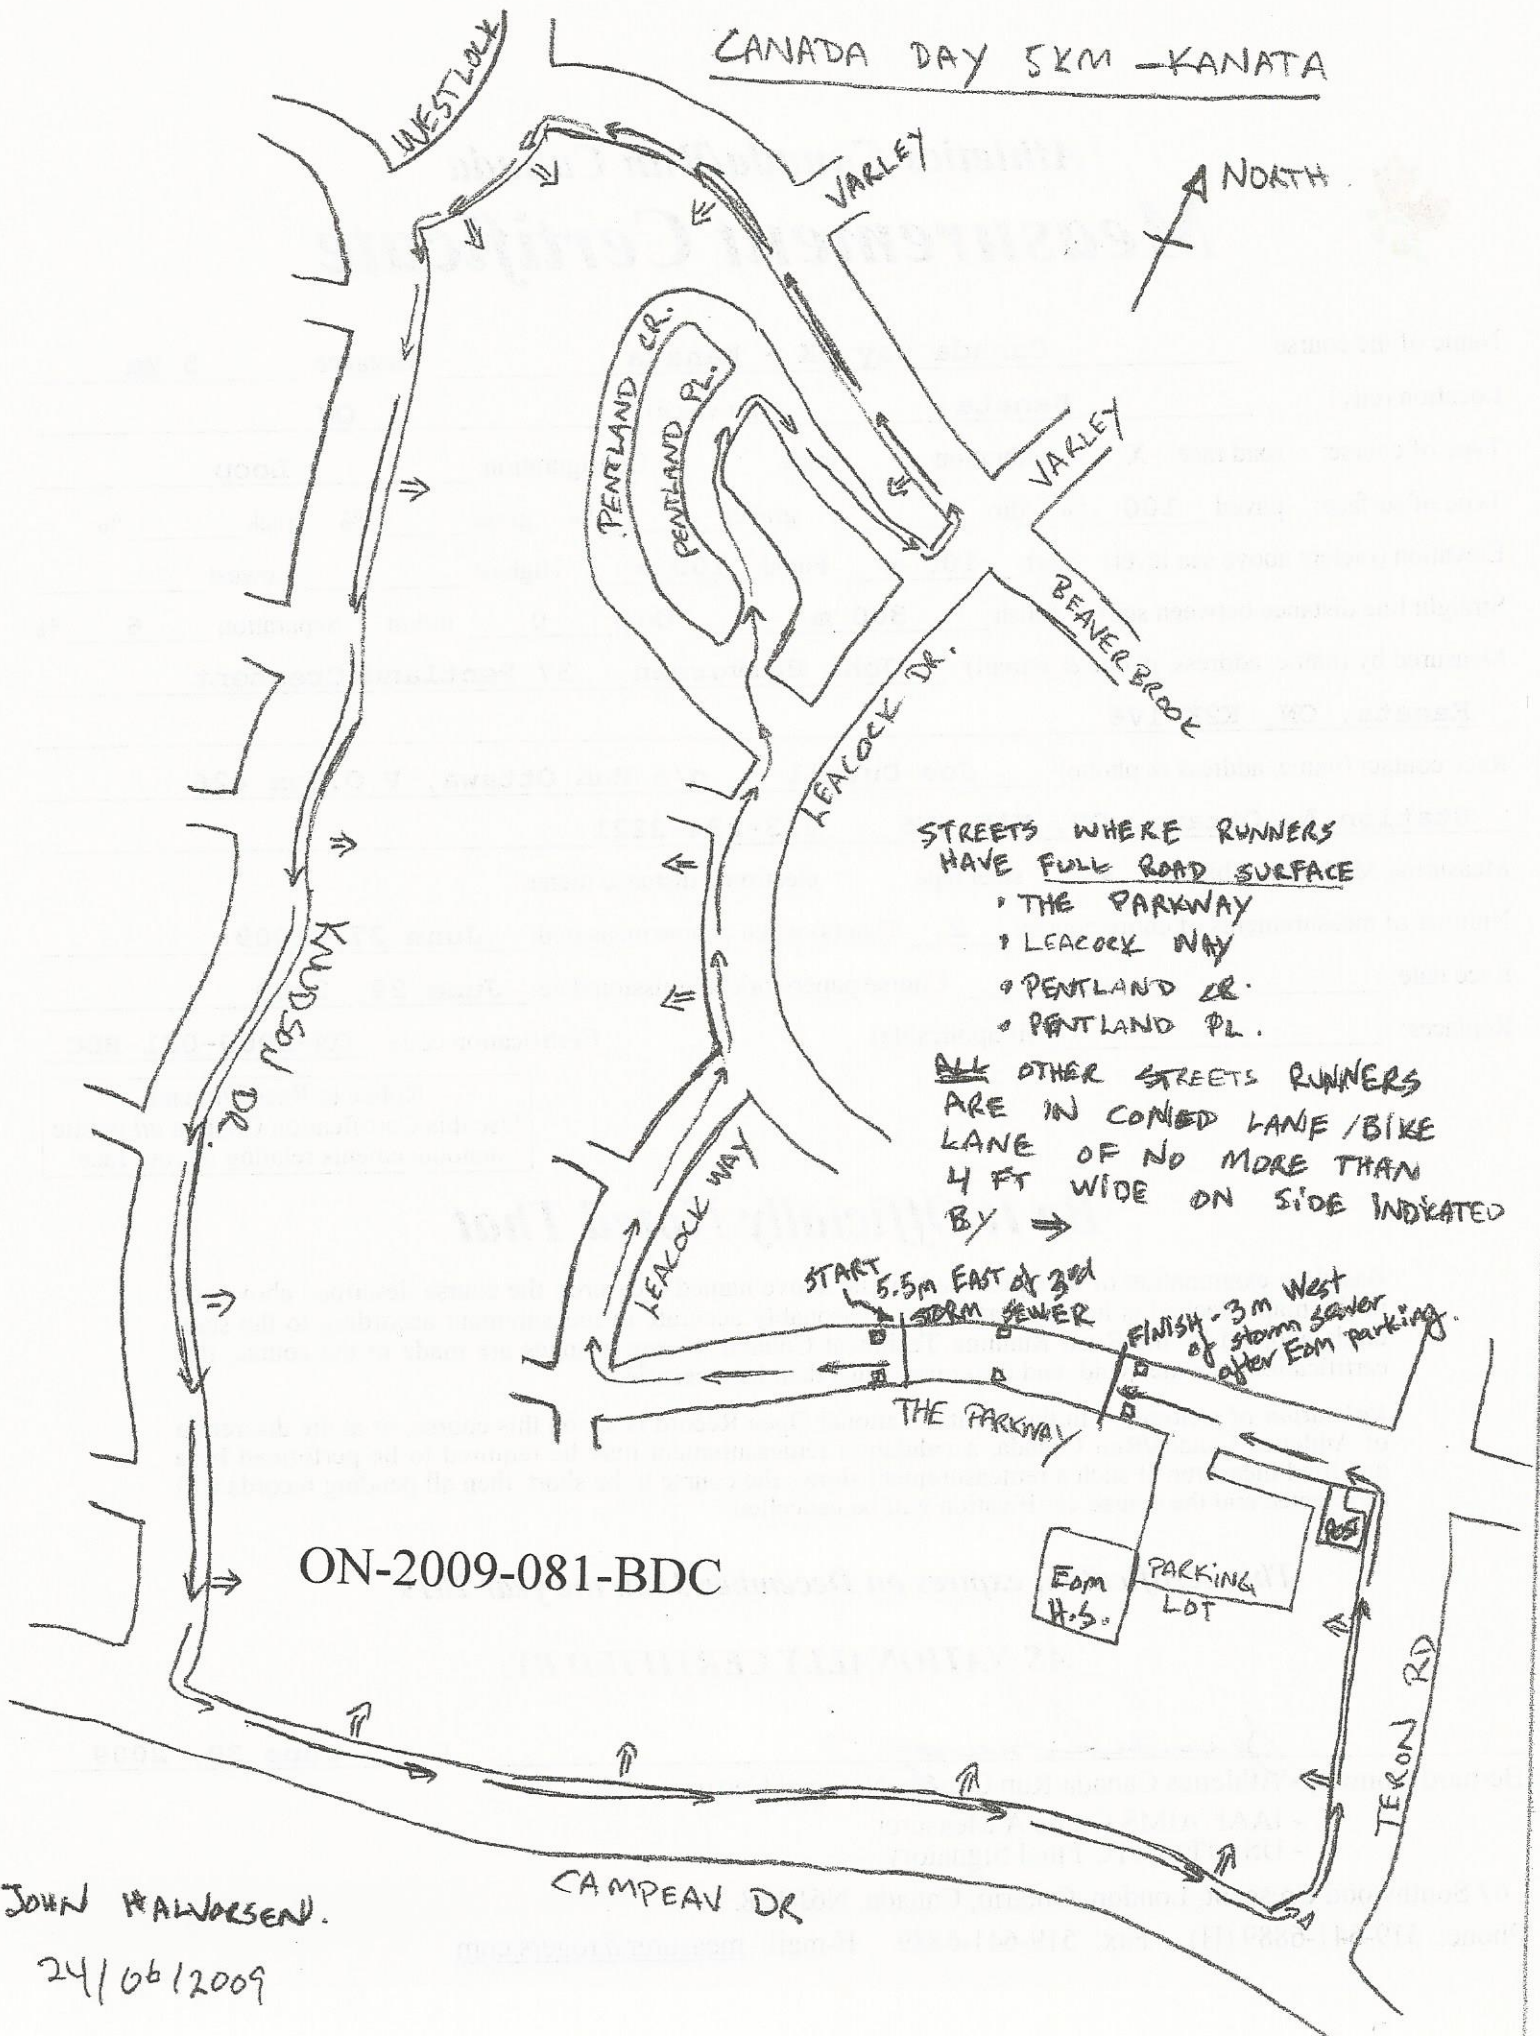 CANADA DAY 5KM - KANATA
WESTLOCK
VARLEY
NORTH
PENTLAND CR.
PENTLAND PL.
VARLEY
BEAVERBROOK
LEACOCK DR.
STREETS WHERE RUNNERS
HAVE FULL ROAD SURFACE
• THE PARKWAY
• LEACOCK WAY
• PENTLAND CR.
• PENTLAND PL.
ALL OTHER STREETS RUNNERS
ARE IN CONED LANE/BIKE
LANE OF NO MORE THAN
4 FT WIDE ON SIDE INDICATED
BY ⇒
KNUDSON DR.
LEACOCK WAY
START
5.5m EAST of 3rd
STORM SEWER
FINISH - 3m West
of storm sewer
after Eom parking.
THE PARKWAY
ON-2009-081-BDC
EOM
H.S.
PARKING
LOT
TERON RD
CAMPEAU DR
JOHN HALVORSEN.
24/06/2009